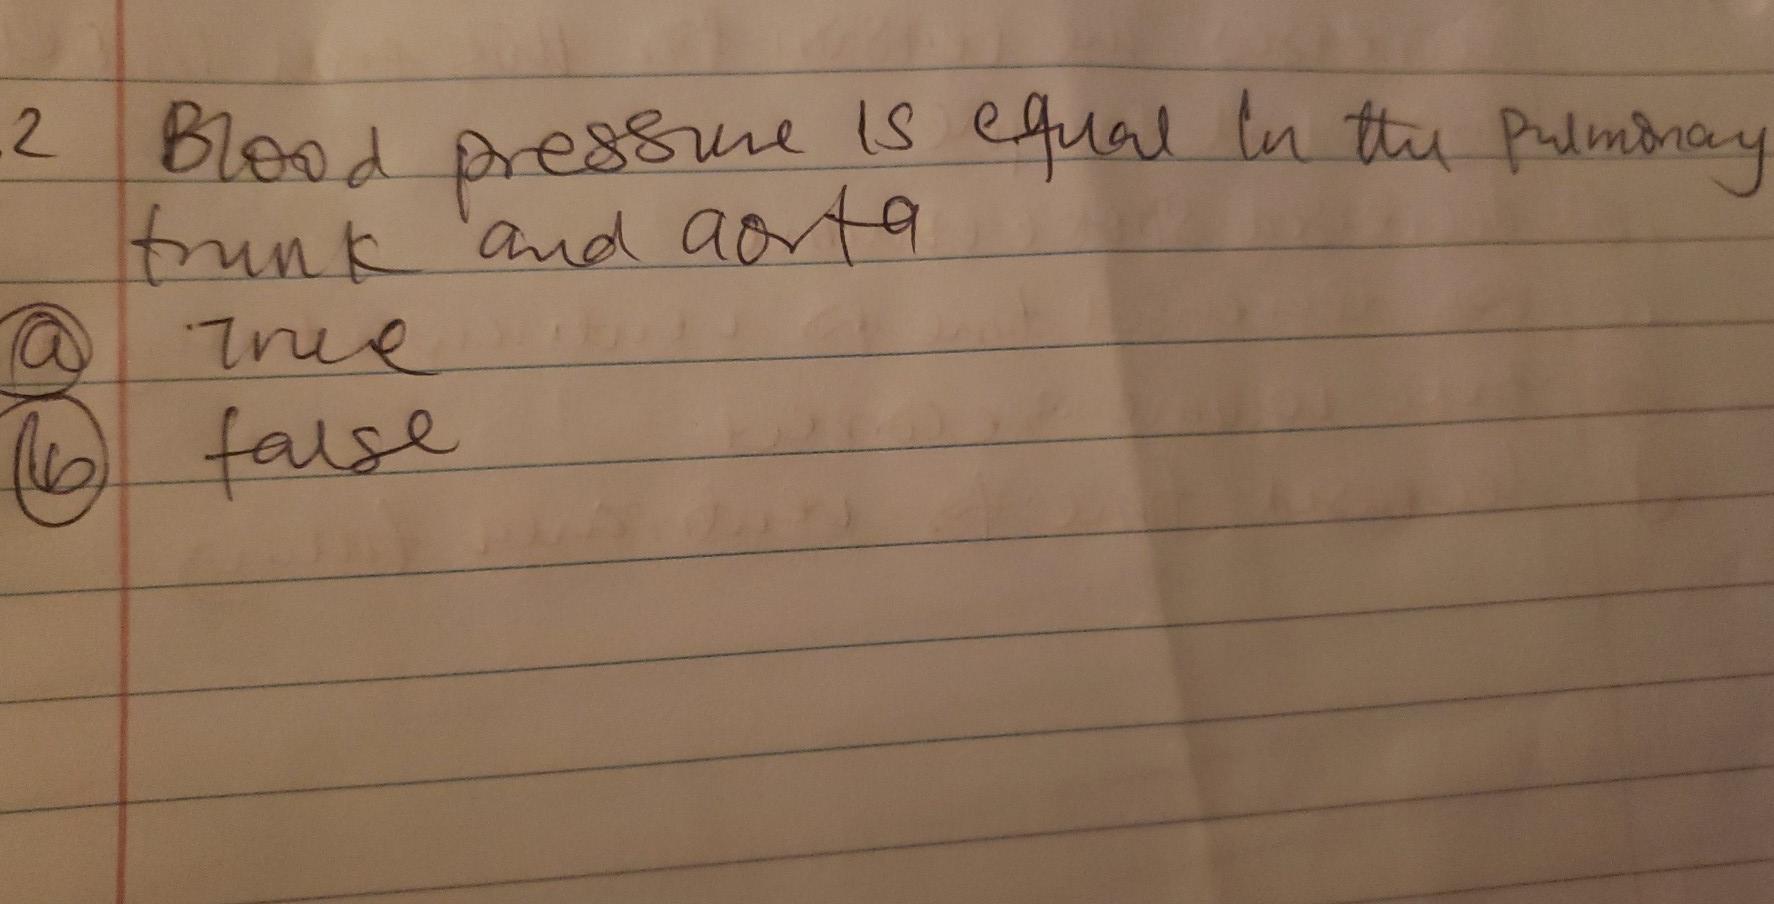 2 Blood pressure is equal in the pulmonary
trunk and aorta
a True
b false